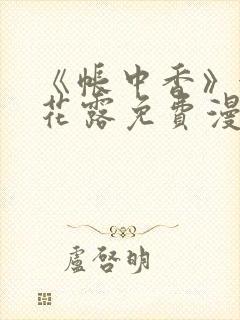 《帐中香》
花露免费漫
卢启明